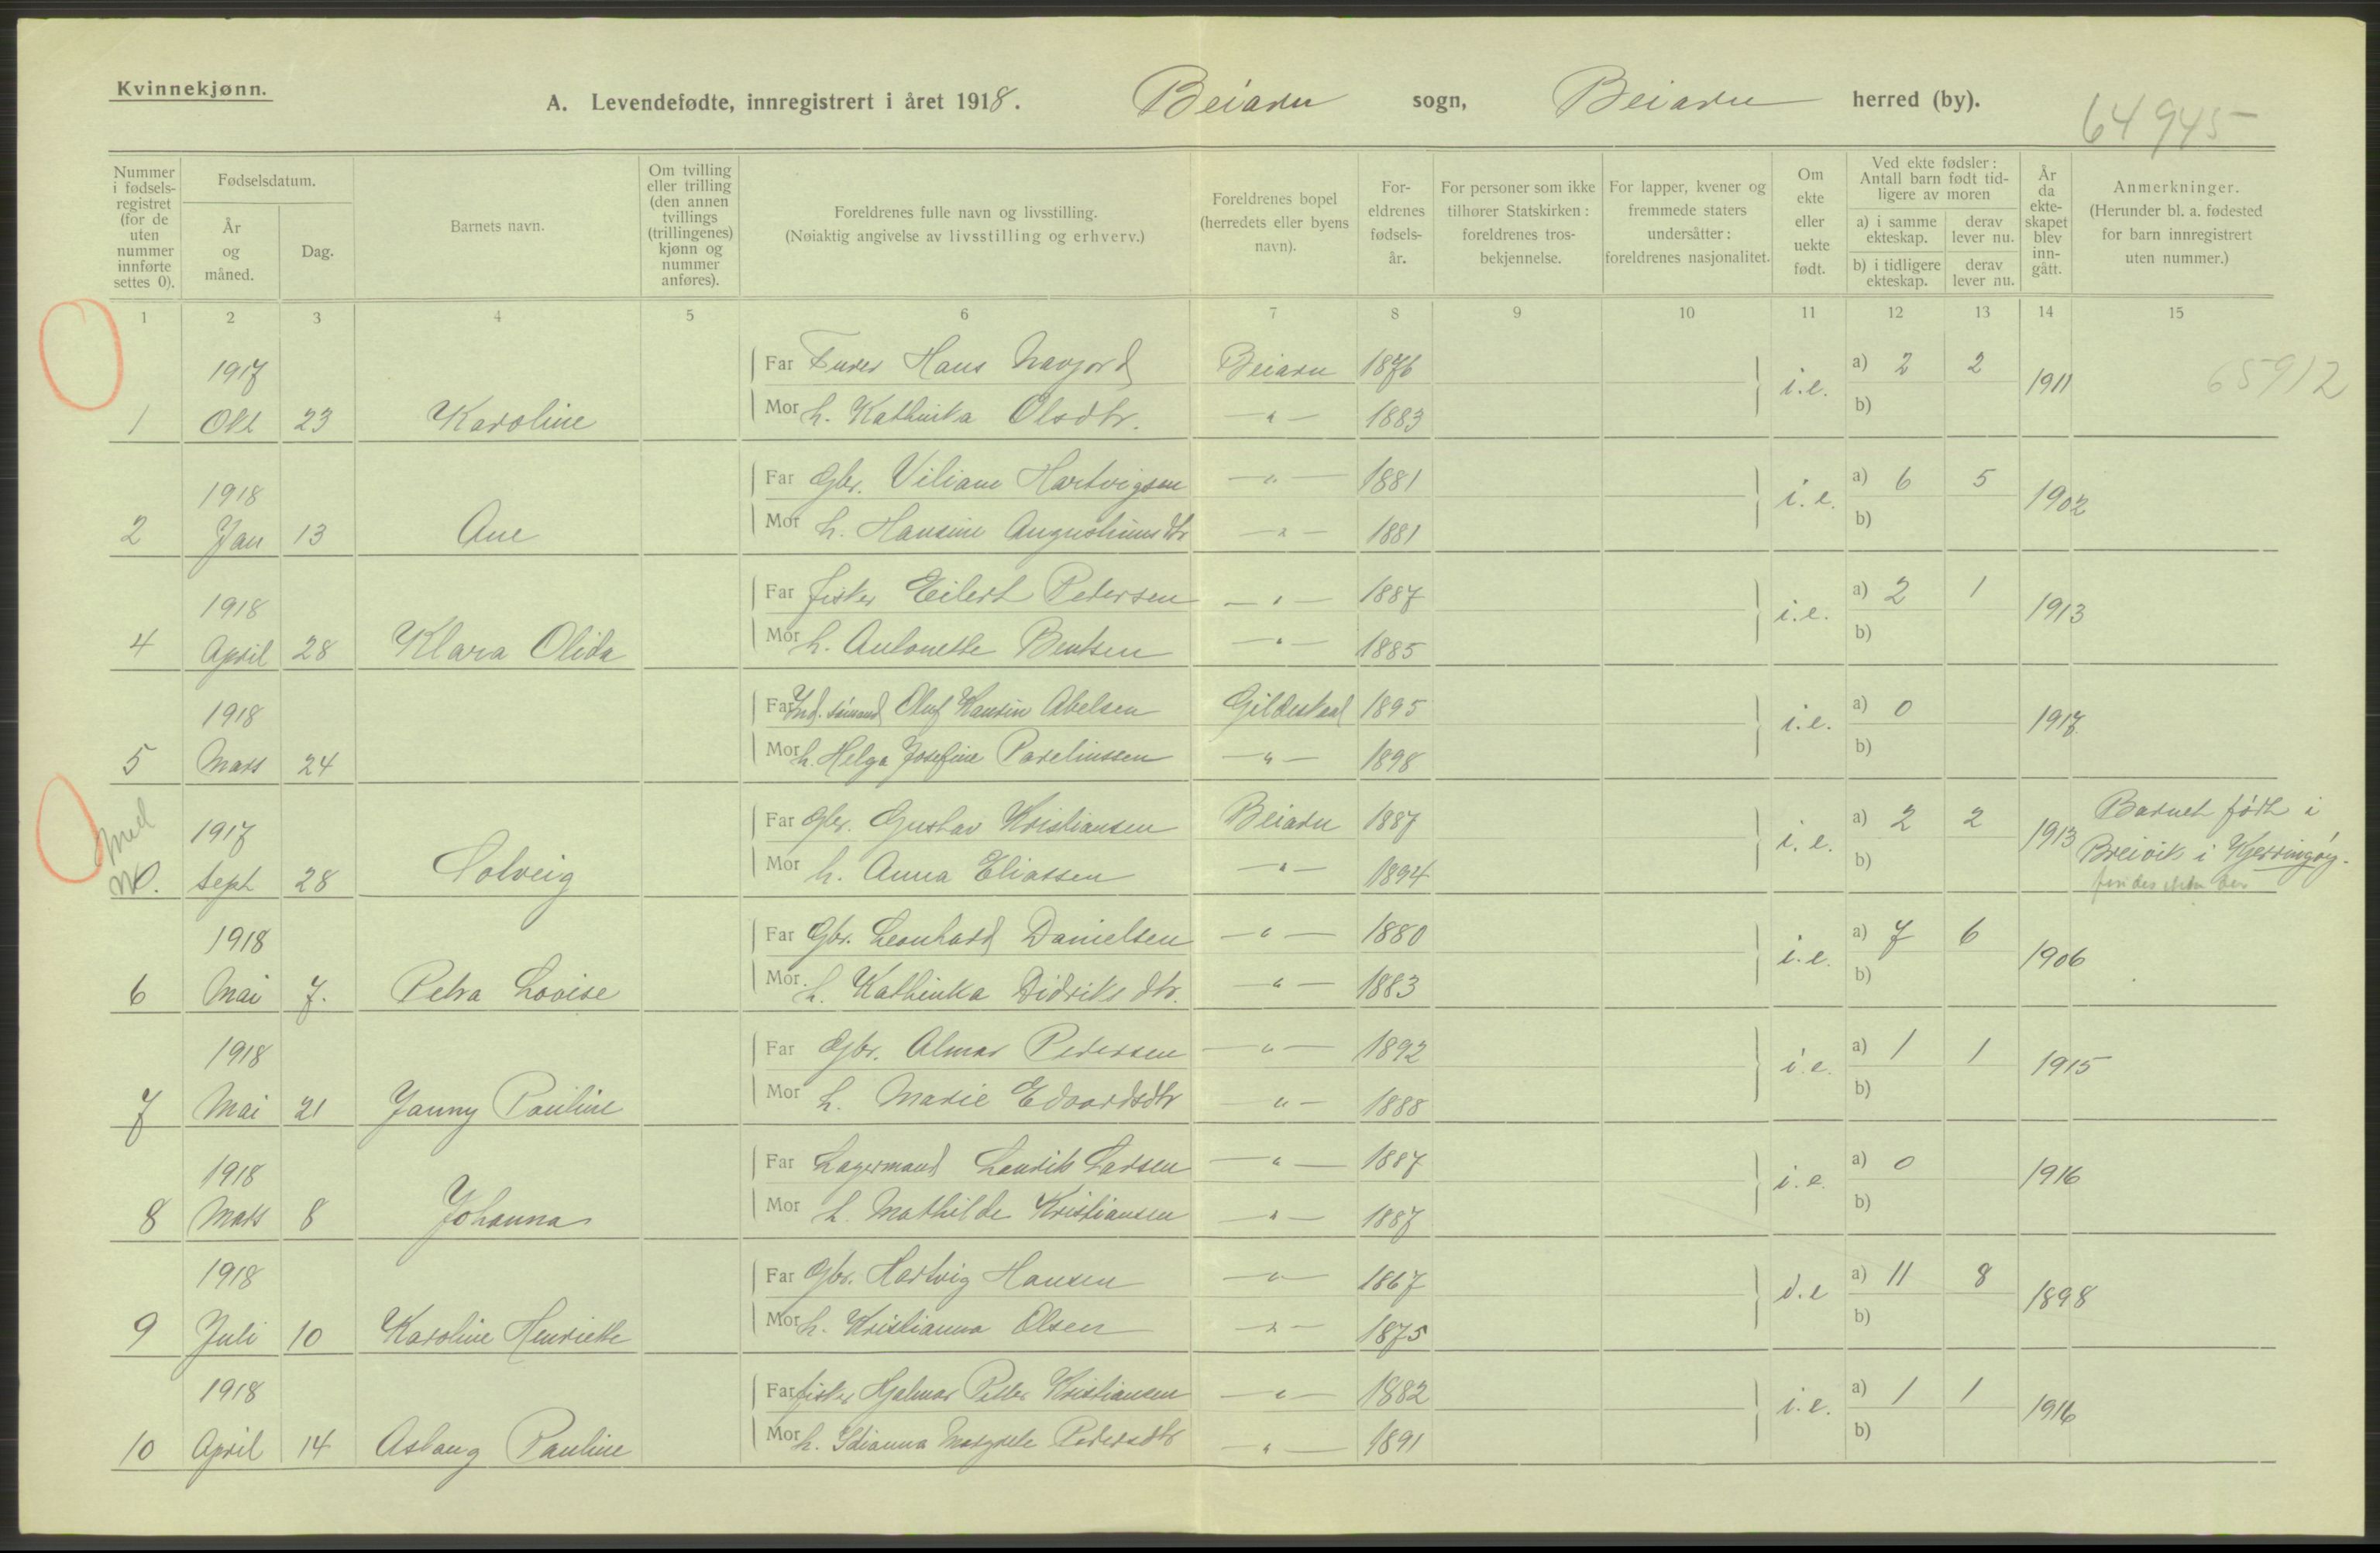 Kvinnekjønn.
A. Levendefødte, innregistrert i året 1918. Beiarn sogn, Beiarn herred (by).
64945
Nummer i fødsels-registret (for de uten nummer innførte settes 0).
Fødselsdatum.
År og måned.
Dag.
Barnets navn.
Om tvilling eller trilling (den annen tvillings (trillingenes) kjønn og nummer anføres).
Foreldrenes fulle navn og livsstilling.
(Nøiaktig angivelse av livsstilling og erhverv.)
Foreldrenes bopel (herredets eller byens navn).
For-eldrenes fødsels-år.
For personer som ikke tilhører Statskirken: foreldrenes tros-bekjennelse.
For lapper, kvener og fremmede staters undersåtter: foreldrenes nasjonalitet.
Om ekte eller uekte født.
Ved ekte fødsler: Antall barn født tid-ligere av moren
a) i samme ekteskap. derav lever nu.
b) i tidligere ekteskap. derav lever nu.
År da ekte-skapet blev inn-gått.
Anmerkninger.
(Herunder bl. a. fødested for barn innregistrert uten nummer.)
1 2 3 4 5 6 7 8 9 10 11 12 13 14 15
1917 Far Hans Navjord Beiarn 1876 i.e. a) 2 2 1911 65912
1 Okt 23 Karoline Mor h. Kathinka Olsdtr. —"— 1883 b)
1918 Far Gbr. Viliam Hartvigsen —"— 1881 i.e. a) 6 5 1902
2 Jan 13 Ane Mor h. Hansine Augustinusdtr —"— 1881 b)
1918 Far fisker Eilert Petersen —"— 1887 i.e. a) 2 1 1913
4 April 28 Klara Olida Mor h. Antonette Bentsen —"— 1885 b)
1918 Far Ind. sømand Oluf Hansin Abelsen Gildeskaal 1895 i.e. a) 0 1917
5 Mars 24 Mor h. Helga Josefine Parelinssen —"— 1898 b)
med
1917 Far Gbr. Gustav Kristiansen Beiarn 1887 i.e. a) 2 2 1913 Barnet født i
0. Sept 28 Solveig Mor h. Anna Eliassen —"— 1894 b) Breivik i Kjerringøy.
findes ikke der
1918 Far Gbr. Leonhard Danielsen —"— 1880 i.e. a) 7 6 1906
6 Mai 7. Petra Lovise Mor h. Kathinka Didriksdtr. —"— 1883 b)
1918 Far Gbr. Almar Pedersen —"— 1892 i.e. a) 1 1 1915
7 Mai 21 Janny Pauline Mor h. Marie Edvardsdtr —"— 1888 b)
1918 Far Lagermand Laurits Larsen —"— 1887 i.e. a) 0 1916
8 Mars 8 Johanna Mor h. Mathilde Kristiansen —"— 1887 b)
1918 Far Gbr. Hartvig Hansen —"— 1867 i.e a) 11 8 1898
9 Juli 10 Karoline Henriette Mor h. Kristianna Olsen —"— 1875 b)
1918 Far fisker Hjalmar Petter Kristiansen —"— 1882 i.e. a) 1 1 1916
10 April 14 Aslaug Pauline Mor h. Idianna Margrete Pedersdtr —"— 1891 b)